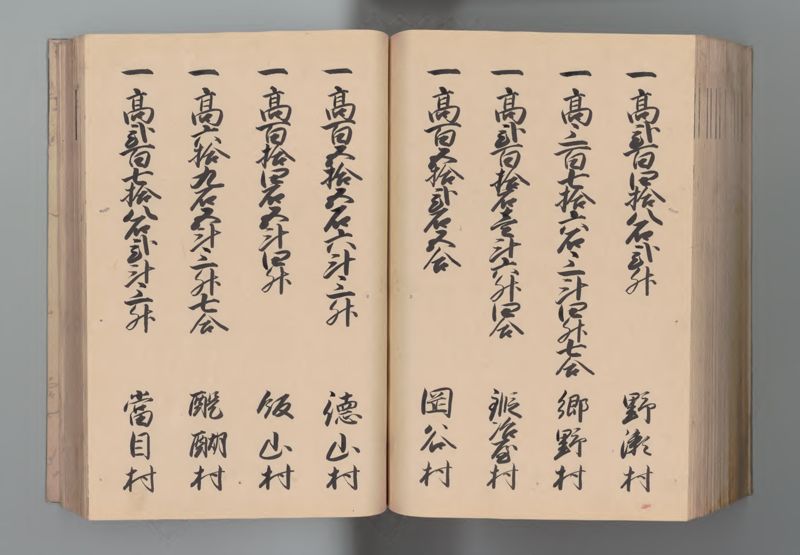 一 高弐百四拾八石弐升 野瀬村
一 高三百七拾六石三斗四升七合 郷野村
一 高弐百拾石壱斗六升四合 鍛冶屋村
一 高百五拾弐石五合 岡谷村
一 高百五拾五石六斗三升 徳山村
一 高百拾四石五斗四升 飯山村
一 高六拾九石五斗三升七合 醍醐村
一 高弐百七拾八石弐斗三升 當目村